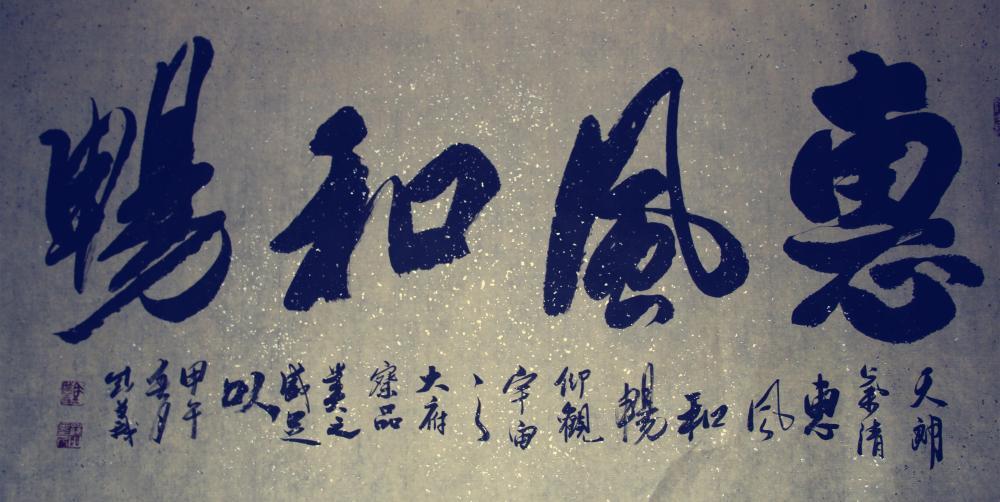 惠風和暢
天朗
氣清
惠
风
和
暢
仰觀
宇宙
之
大府
察品
類之
盛足
以
甲午
月
義